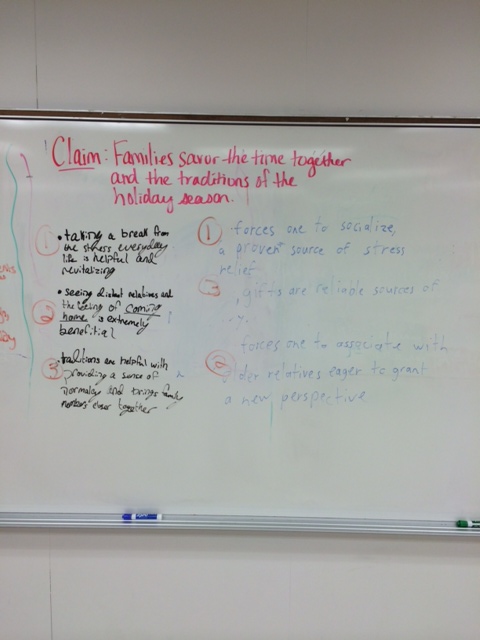 Claim: Families savor the time together
and the traditions of the
holiday season.
1
• taking a break from
the stress everyday
life is helpful and
revitalizing
2
• seeing distant relatives and
the feeling of coming
home is extremely
benefitial
3
• traditions are helpful with
providing a sence of
normalcy and brings family
closer together
1
forces one to socialize,
a proven source of stress
relief
3
gifts are reliable sources of
2
forces one to associate with
relatives eager to grant
a new perspective